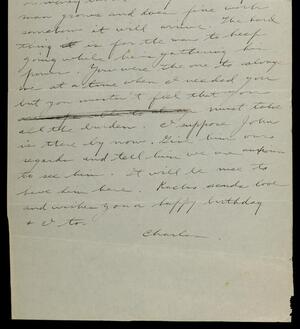 man grows and does fine work
somehow it will arrive. The hard
thing is for the man to keep
going while he is gathering his
power. You were the one to salvage
me at a time when I needed you
but you mustn't feel that you
must take
all the burden. I suppose John
is there by now. Give him our
regards and tell him we are anxious
to see him. It will be nice to
have him here. Rachel sends love
and wishes you a happy birthday
& I to.
Charles